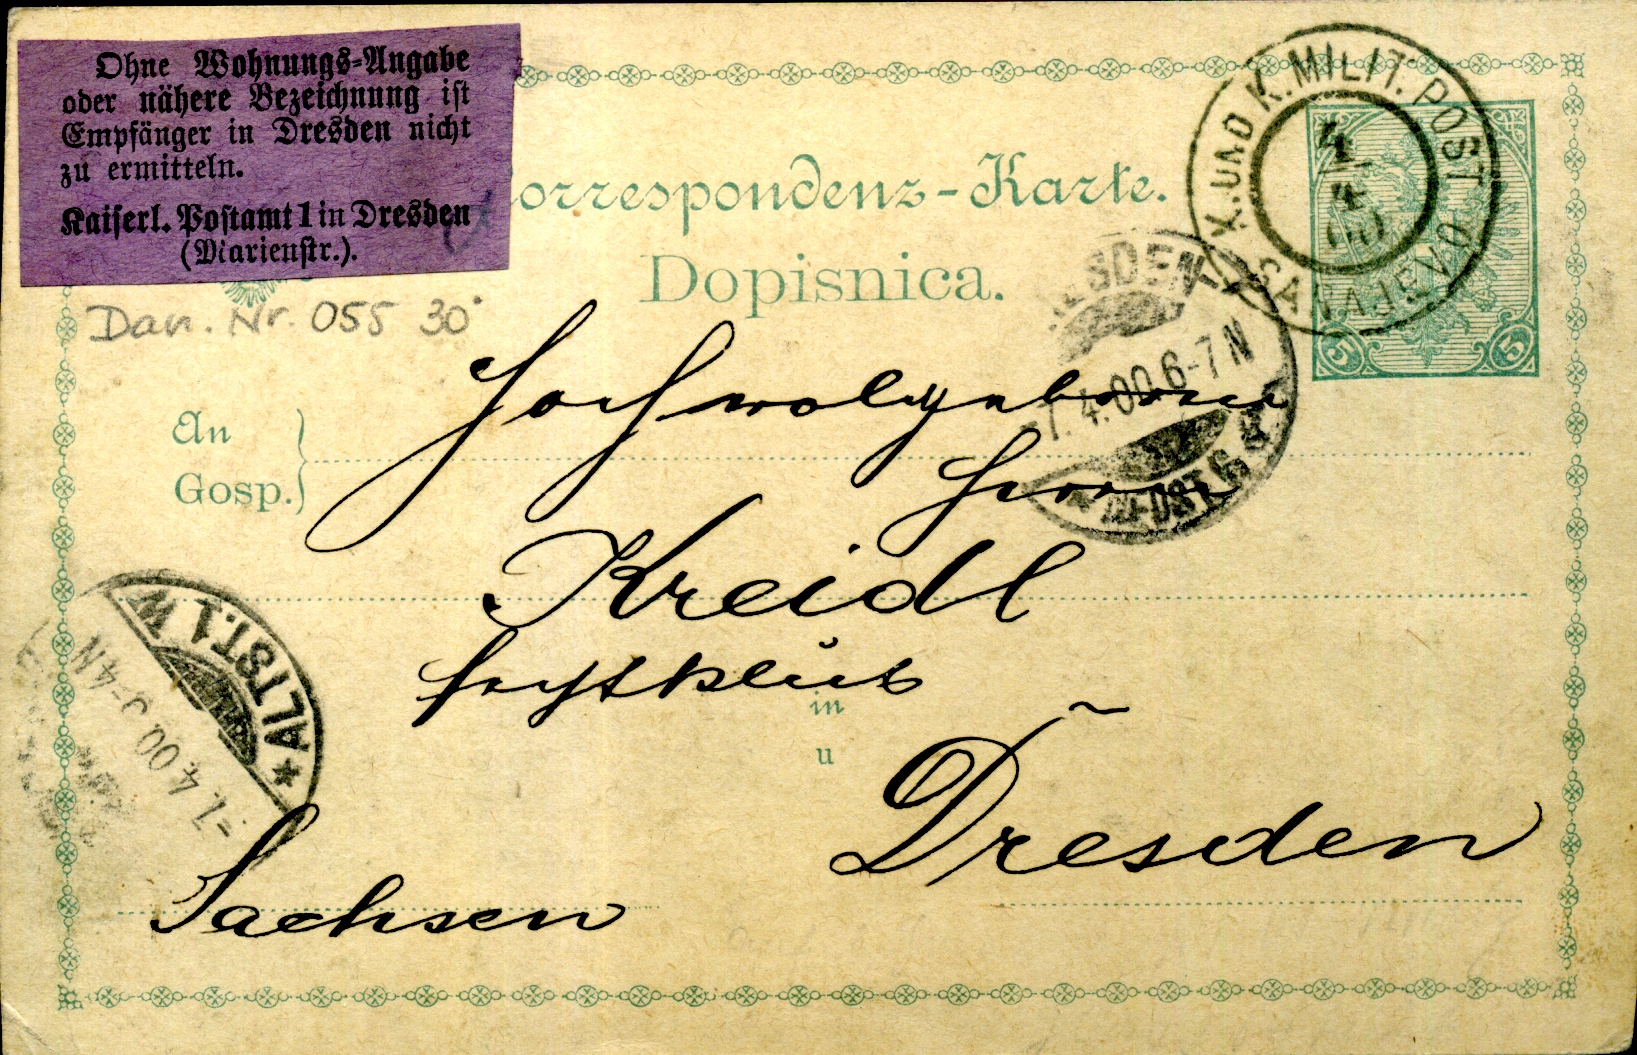 Ohne Wohnungs-Angabe
oder nähere Bezeichnung ist
Empfänger in Dresden nicht
zu ermitteln.
Kaiserl. Postamt 1 in Dresden
(Marienstr.).
Correspondenz-Karte.
Dopisnica.
K. UND K. MILIT. POST
SARAJEVO
4
4
00
5 5
Dan. Nr. 055 30
DRESDEN
-7. 4. 00. 6-7 N
An
Gosp.
Hochwolgeboren
Herrn
Kreidl
in
u
Dresden
Sachsen
ALTST. 1 W
-7. 4 00. 3-4 N